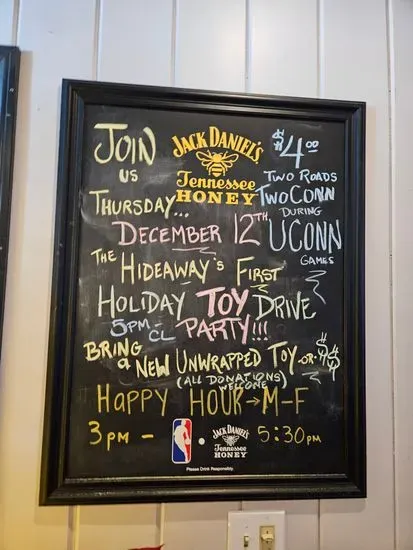 JOIN
US
THURSDAY...
JACK DANIEL'S
Tennessee
HONEY
$4.00
TWO ROADS
TWOCONN
DURING
UCONN
GAMES
DECEMBER 12TH
THE HIDEAWAY'S FIRST
HOLIDAY TOY DRIVE
5PM-CL PARTY!!!
BRING a NEW UNWRAPPED TOY -OR- $$
(ALL DONATIONS WELCOME)
HAPPY HOUR → M-F
3PM - 5:30PM
JACK DANIEL'S
Tennessee
HONEY
Please Drink Responsibly.